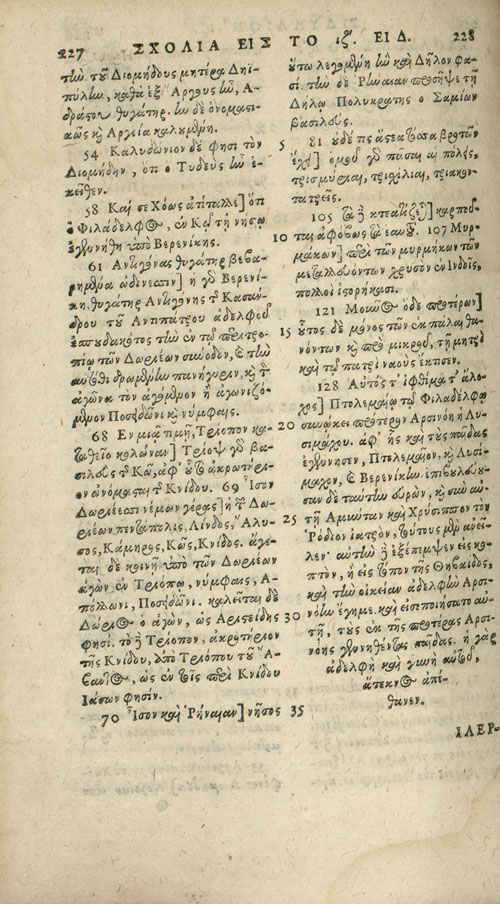 227 ΣΧΟΛΙΑ ΕΙΣ ΤΟ ιζ΄. ΕΙΔ. 228
τὴν τοῦ Διομήδους μητέρα Δηϊ-
πύλην, καθὰ ἐξ Ἄργους ἦν, Ἀ-
δράστου θυγάτηρ. ἣν δὲ ὀνομαστι-
κῶς καὶ Ἀργεία καλουμένη.
54 Καλυδώνιον δέ φησι τὸν
Διομήδην, ὅτι ὁ Τυδεὺς ἦν ἐ-
κεῖθεν.
58 Καί σε Κόως ἀτίταλλε] ὅτι
ὁ Φιλάδελφος, ἐν Κῷ τῇ νήσῳ
ἐγεννήθη ὑπὸ Βερενίκης.
61 Ἀντιγόνας θυγάτηρ βεβα-
ρημένα ὠδίνεσσιν] ἡ γὰρ Βερενί-
κη, θυγάτηρ Ἀντιγόνης τοῦ Κασάν-
δρου τοῦ Ἀντιπάτρου ἀδελφοῦ
πίῳ τῶν Δωριέων σύνοδον, καὶ τὴν
αὐτόθι δρωμένην πανήγυριν, καὶ τὸν
ἀγῶνα τὸν ἀγόμενον ἢ ἀγωνιζό-
μενον Ποσειδῶνι καὶ νύμφαις.
68 Ἐν μιᾷ τιμῇ, Τρίοπον κα-
ταθεῖο κολώναν] Τρίοψ γὰρ βα-
σιλεὺς τῆς Κῶ, ἀφ' οὗ τὸ ἀκρωτήρι-
ον ὠνόμασται τῆς Κνίδου. 69 Ἶσον
Δωριέεσσι νέμων γέρας] ἡ τῶν Δω-
ριέων πεντάπολις, Λίνδος, Ἰάλυ-
σος, Κάμηρος, Κῶς, Κνίδος. ἄγε-
ται δὲ κοινῇ ὑπὸ τῶν Δωριέων
ἀγὼν ἐν Τριόπῳ, νύμφαις, Ἀ-
πόλλωνι, Ποσειδῶνι. καλεῖται δὲ
Δώριος ὁ ἀγὼν, ὡς Ἀριστείδης
φησί. τὸ δὲ Τρίοπον, ἀκρωτήριον
τῆς Κνίδου, ἀπὸ Τριόπου τοῦ Ἄ-
βαντος, ὡς ἐν τοῖς περὶ Κνίδου
Ἰάσων φησίν.
70 Ἶσον καὶ Ῥήναιαν] νῆσος
οὕτω λεγομένη ἦν καὶ Δῆλόν φα-
σί. τὴν δὲ Ῥήναιαν προσῆψε τῇ
Δήλῳ Πολυκράτης ὁ Σαμίων
βασιλεύς.
5 81 οὐδέ τις ἄστεα τόσσα βροτῶν
ἔχει] ὁμοῦ γὰρ πᾶσαι αἱ πόλεις,
τρισμύριαι, τρισχίλιαι, τριακον-
τατρεῖς.
105 Τὰ δὲ κτεατίζεται] καρποῦ-
10 ται ἀφόβως τὰ ἑαυτοῦ. 107 Μυρ-
μάκων] περὶ τῶν μυρμήκων τῶν
μεταλλευόντων χρυσὸν ἐν Ἰνδοῖς,
πολλοὶ ἱστορήκασι.
121 Μοῦνος ὅδε προτέρων]
15 οὗτος δὲ μόνος τῶν ἔκπαλαι θα-
νόντων καὶ πρὸ μικροῦ, τῇ μητρὶ
καὶ τῷ πατρὶ ναοὺς ἔκτισεν.
128 Αὐτός τ' ἰφθίμα τ' ἄλο-
χος] Πτολεμαίῳ τῷ Φιλαδέλφῳ
20 συνῴκει πρότερον Ἀρσινόη ἡ Λυ-
σιμάχου. ἀφ' ἧς καὶ τοὺς παῖδας
ἐγέννησεν, Πτολεμαῖον, καὶ Λυσί-
μαχον, καὶ Βερενίκην. ἐπιβουλεύου-
σαν δὲ ταύτην εὑρὼν, καὶ σὺν αὐ-
25 τῇ Ἀμύνταν καὶ Χρύσιππον τὸν
Ῥόδιον ἰατρὸν, τούτους μὲν ἀνεῖ-
λεν· αὐτὴν δὲ ἐξέπεμψεν εἰς Κο-
πτὸν, ἢ εἰς τόπον τῆς Θηβαΐδος,
καὶ τὴν οἰκείαν ἀδελφὴν Ἀρσι-
30 νόην ἔγημε. καὶ εἰσεποιήσατο αὐ-
τῇ, τοὺς ἐκ τῆς προτέρας Ἀρσι-
νόης γεννηθέντας παῖδας. ἡ γὰρ
ἀδελφὴ καὶ γυνὴ αὐτοῦ,
ἄτεκνος ἀπέ-
35 θανεν.
ΙΛΕΡ-